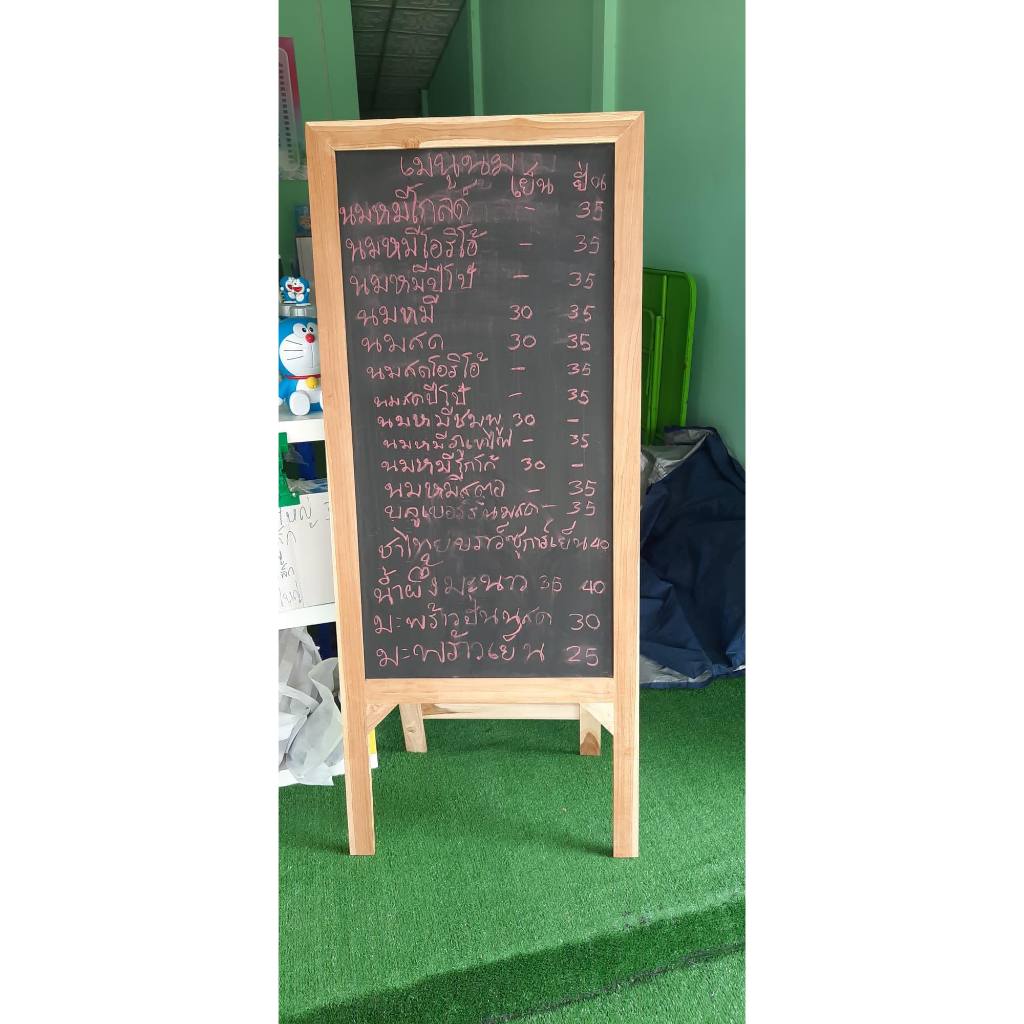 เมนูนม
เย็น ปั่น
นมหมีโกลด์ - 35
นมหมีโอริโอ้ - 35
นมหมีปีโป้ - 35
นมหมี 30 35
นมสด 30 35
นมสดโอริโอ้ - 35
นมสดปีโป้ - 35
นมหมีชมพู 30 -
นมหมีภูเขาไฟ - 35
นมหมี 30 -
นมหมีสตอ - 35
บลูเบอร์รี่นมสด - 35
ชาไทยบราว์ชูการ์เย็น 40
น้ำผึ้งมะนาว 35 40
มะพร้าวปั่นนมสด 30
มะพร้าวเย็น 25